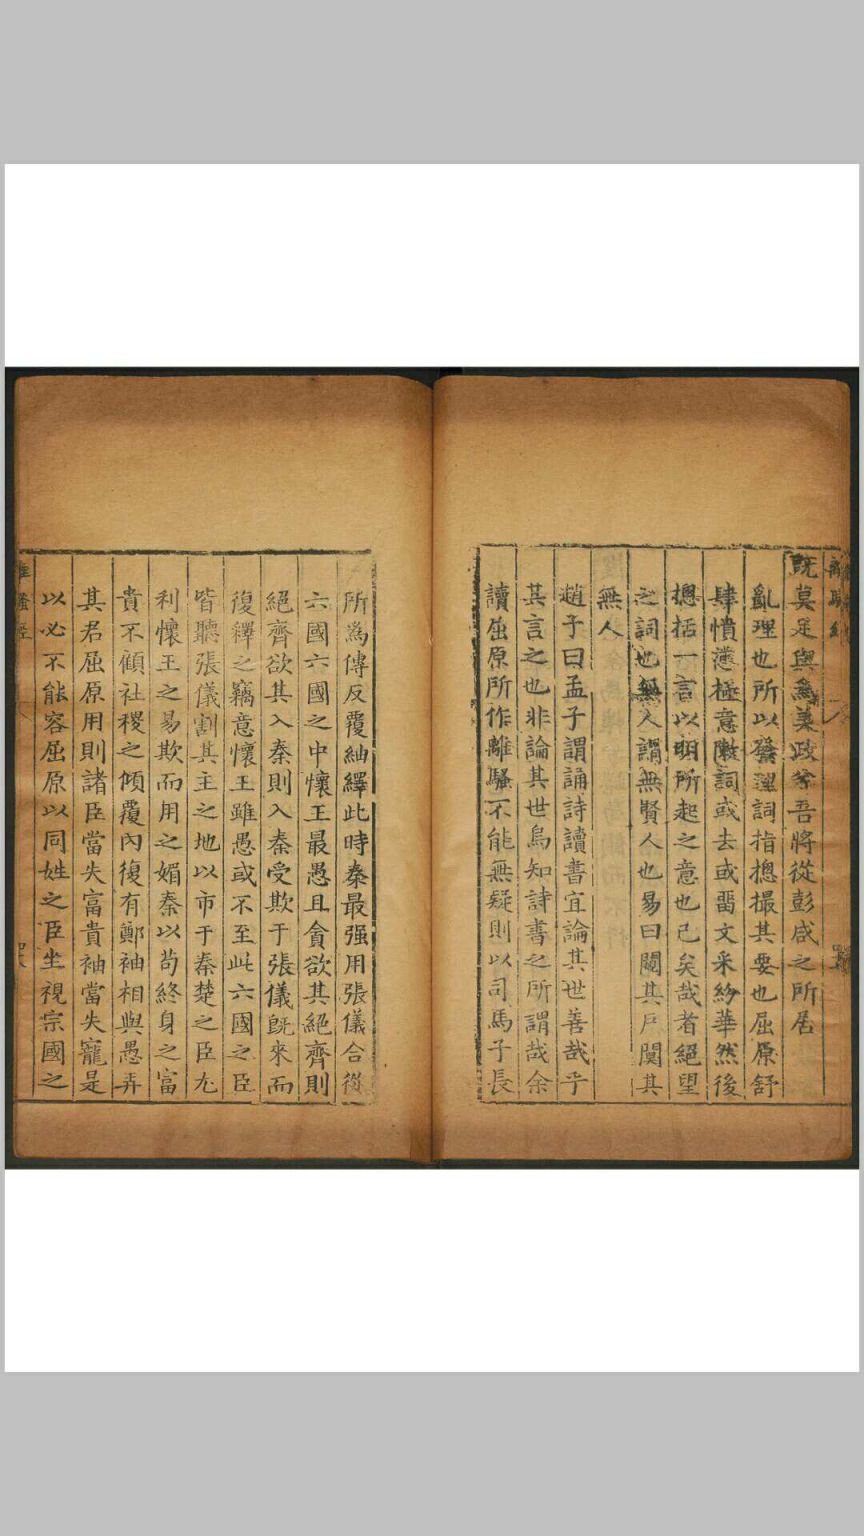 既莫足與爲美政兮吾將從彭咸之所居
亂理也所以發理詞指摠撮其要也屈原舒
肆憤懣極意敶詞或去或畱文采紛華然後
摠括一言以明所起之意也已矣哉者絕望
之詞也無人謂無賢人也易曰闚其戶闃其
無人
趙子曰孟子謂誦詩讀書宜論其世善哉乎
其言之也非論其世烏知詩書之所謂哉余
讀屈原所作離騷不能無疑則以司馬子長
所爲傳反覆紬繹此時秦最强用張儀合從
六國六國之中懷王最愚且貪欲其絕齊則
絕齊欲其入秦則入秦受欺于張儀旣來而
復釋之竊意懷王雖愚或不至此六國之臣
皆聽張儀割其主之地以市于秦楚之臣尤
利懷王之易欺而用之媚秦以苟終身之富
貴不顧社稷之傾覆內復有鄭袖相與愚弄
其君屈原用則諸臣當失富貴袖當失寵是
以必不能容屈原以同姓之臣坐視宗國之
離騷經